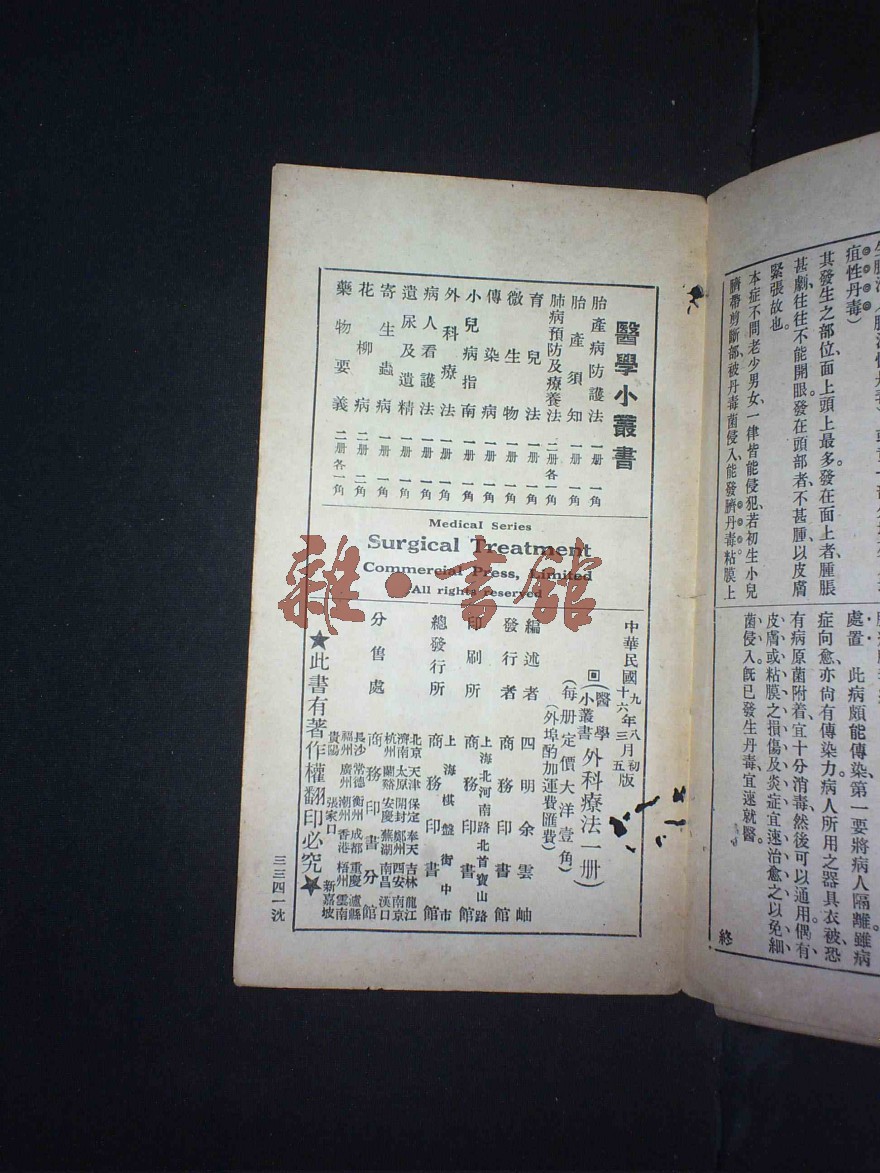 生
疽性丹毒）
其發生之部位、面上頭上最多。發在面上者、腫脹
甚劇、往往不能開眼。發在頭部者、不甚腫、以皮膚
緊張故也。
本症不問老少男女、一律皆能侵犯。若初生小兒
臍帶剪斷部、被丹毒菌侵入、能發臍丹毒。粘膜上
處置　此病頗能傳染。第一要將病人隔離。雖病
症向愈、亦尙有傳染力。病人所用之器具衣被、恐
有病原菌附着、宜十分消毒、然後可以通用。偶有
皮膚或粘膜之損傷及炎症、宜速治愈之、以免細
菌侵入。旣已發生丹毒、宜速就醫。
終
醫學小叢書
胎產病防護法　一册　一角
胎產須知　一册　一角
肺病預防及療養法　二册各一角
育兒法　一册　一角
微生物　一册　一角
傳染病　一册　一角
小兒病指南　一册　一角
外科療法　一册　一角
病人看護法　一册　一角
遺尿及遺精　一册　一角
寄生蟲病　一册　一角
花柳病　二册　二角
藥物要義　二册各一角
Medical Series
Surgical Treatment
Commercial Press, Limited
All rights reserved
中華民國九年八月初版
十六年三月五版
(醫學小叢書)外科療法一册)
(每册定價大洋壹角)
(外埠酌加運費匯費)
編述者　四明余雲岫
發行者　商務印書館
印刷所　上海北河南路北首寶山路
商務印書館
總發行所　上海棋盤街中市
商務印書館
分售處　北京　天津　保定　奉天　吉林　龍江
濟南　太原　開封　鄭州　西安　南京
杭州　蘭谿　安慶　蕪湖　南昌　漢口
商務印書分館
長沙　常德　衡州　成都　重慶　瀘縣
福州　廣州　潮州　香港　梧州　雲南
貴陽　張家口　新嘉坡
★此書有著作權翻印必究★
三三四一沈
雜·書館